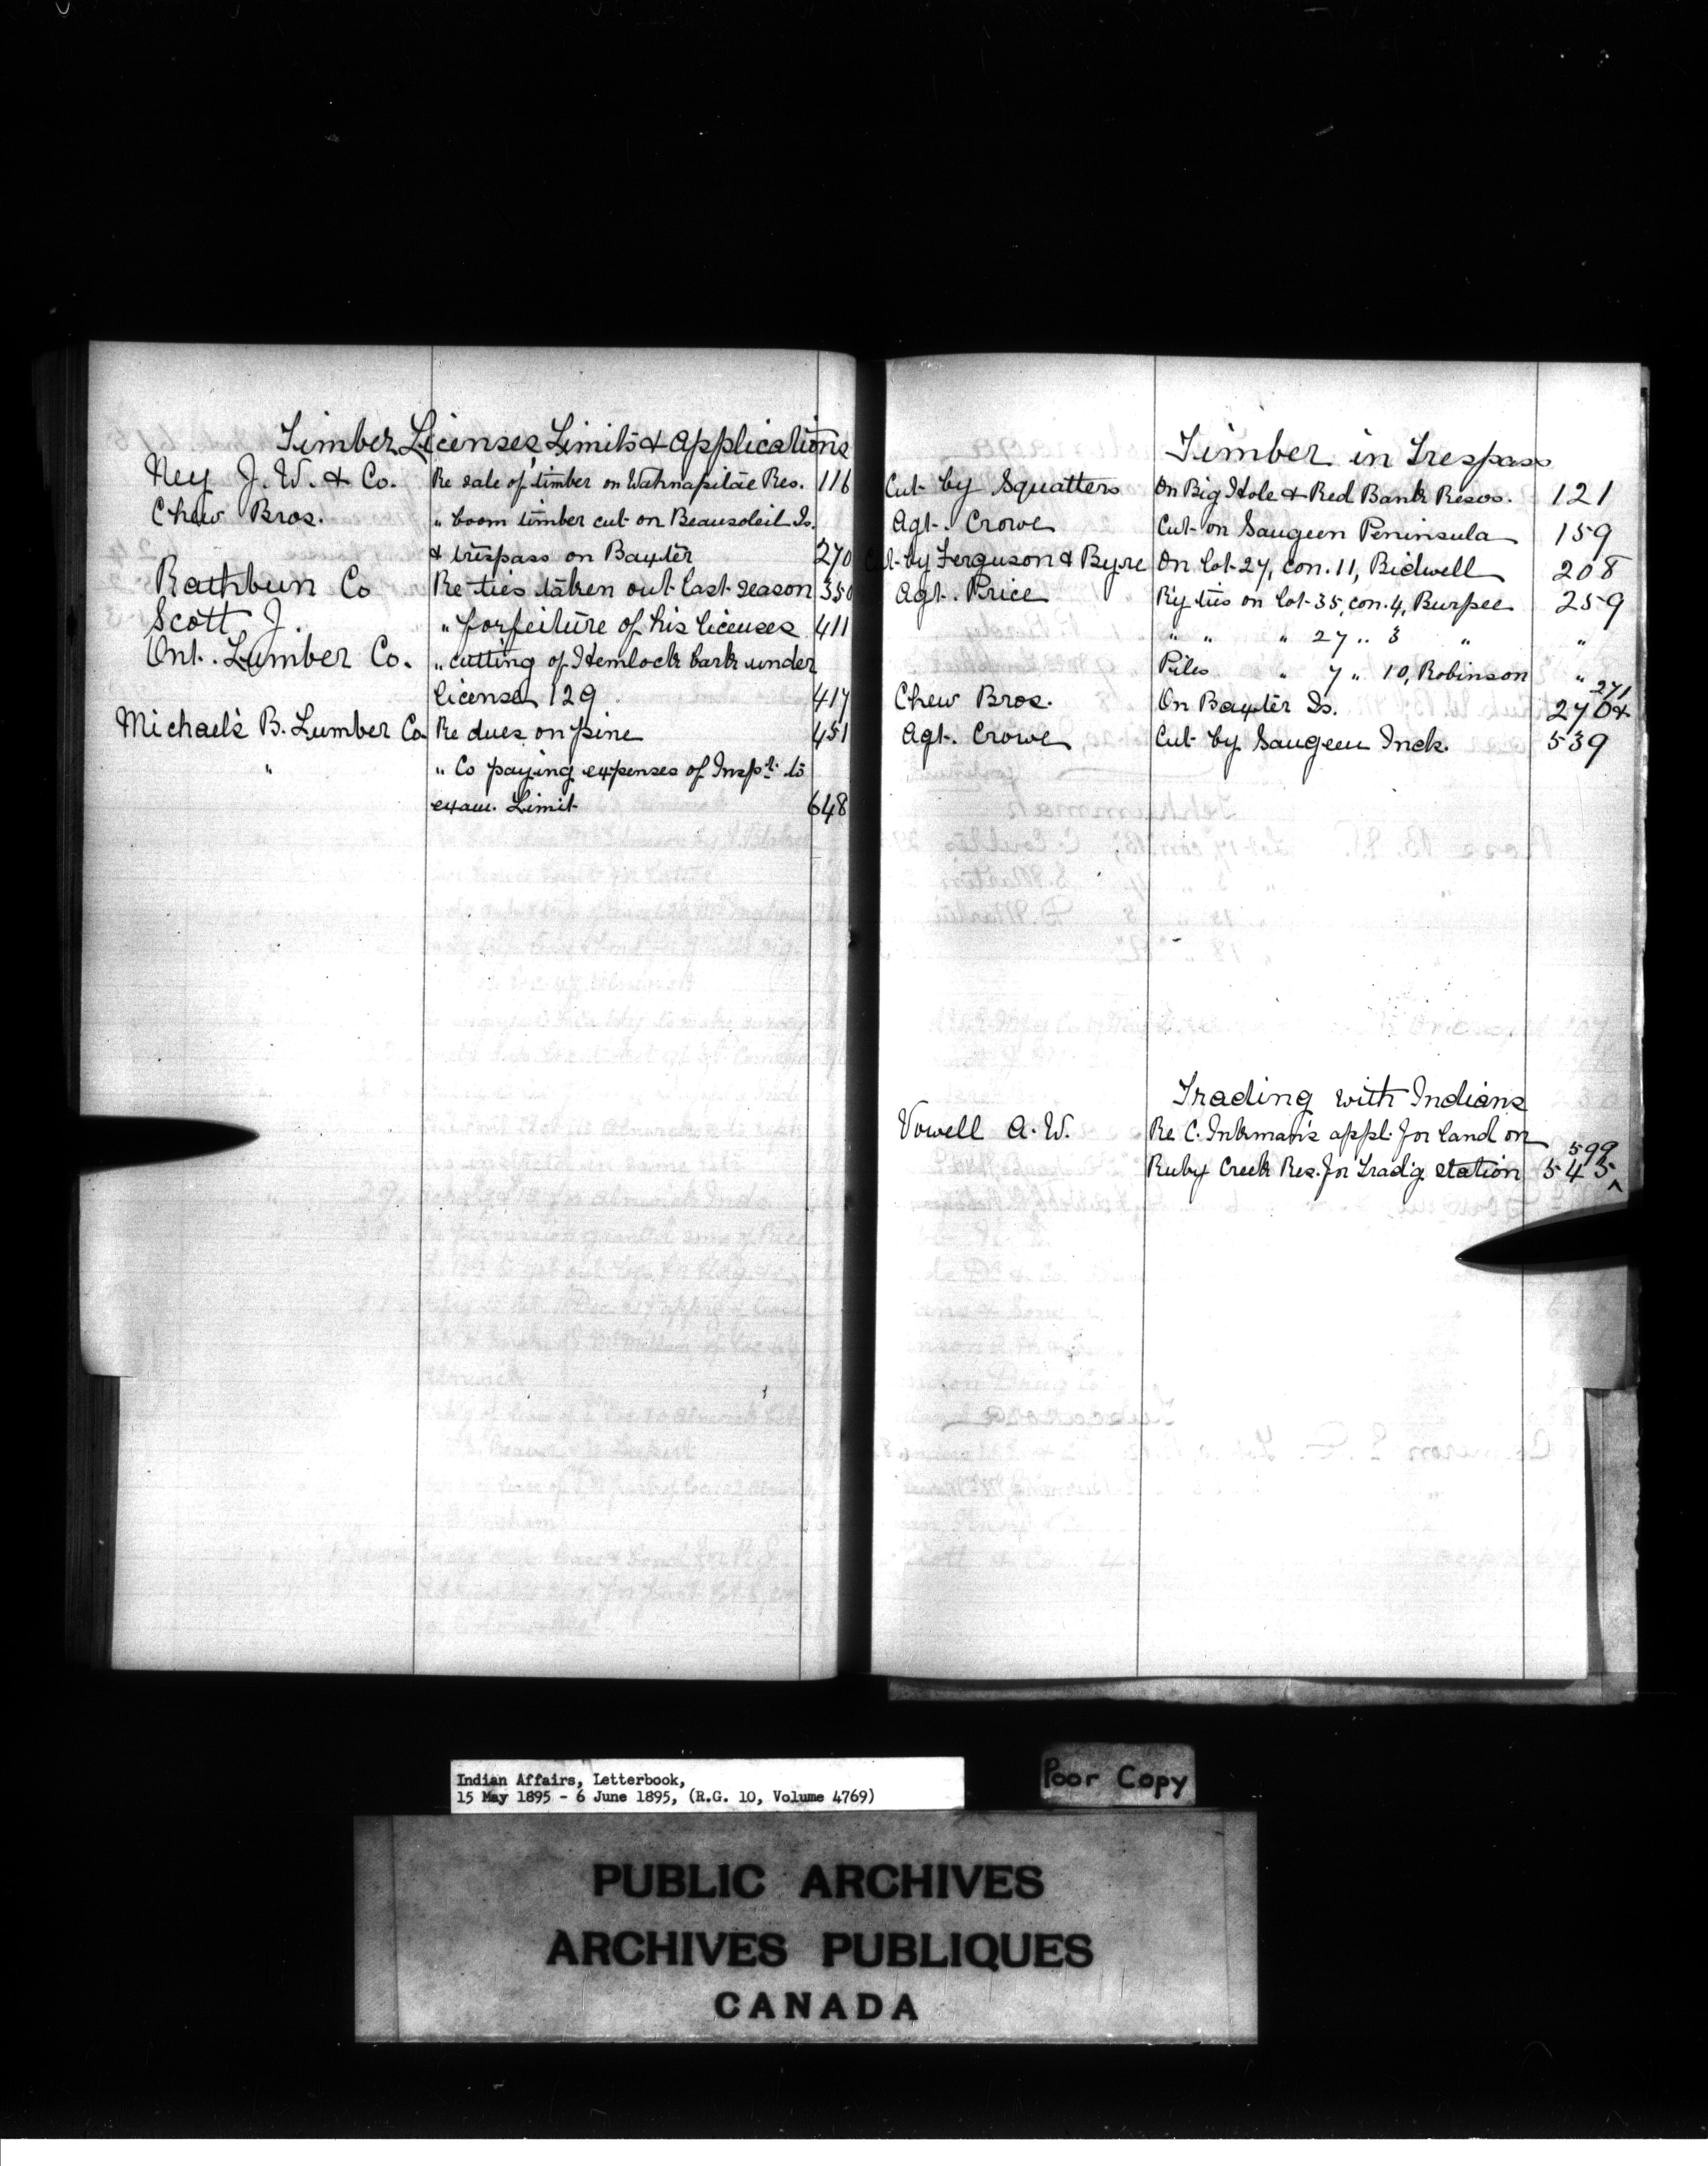 Timber Licenses, Limits & Applications
Ney J. W. & Co. Re sale of timber on Wahnapitae Res. 116
Chew Bros. " boom timber cut on Beausoleil Is.
& trespass on Baxter 270
Rathbun Co Re ties taken out last season 350
Scott J. " forfeiture of his licenses 411
Ont. Lumber Co. " cutting of Hemlock bark under
license 129 417
Michael's B. Lumber Co. Re dues on pine 451
" " Co paying expenses of Inspr. to
exam. Limit 648
Timber in Trespass
Cut by Squatters On Big Hole & Red Bank Resvs. 121
Agt. Crowe Cut on Saugeen Peninsula 159
Cut by Ferguson & Byrne On Lot 27, con. 11, Bidwell 208
Agt. Price Ry ties on Lot 35, con. 4, Burpee 259
" " " 27 " 3 " "
Piles " 7 " 10, Robinson "
Chew Bros. On Baxter Is. 270 & 271
Agt. Crowe Cut by Saugeen Inds. 539
Trading with Indians
Vowell A. W. Re C. Inkman's appl. for land on
Ruby Creek Res. for Tradg. station 545 599
Indian Affairs, Letterbook,
15 May 1895 - 6 June 1895, (R.G. 10, Volume 4769)
Poor Copy
PUBLIC ARCHIVES
ARCHIVES PUBLIQUES
CANADA